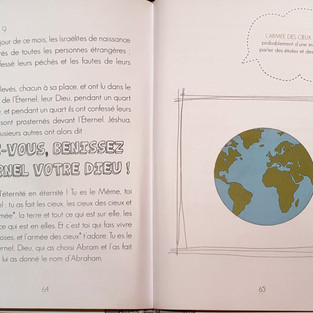 9
jour de ce mois, les Israélites de naissance
rés de toutes les personnes étrangères :
fessé leurs péchés et les fautes de leurs
levés, chacun à sa place, et ont lu dans le
de l'Eternel, leur Dieu, pendant un quart
e, et pendant un quart ils ont confessé leurs
sont prosternés devant l'Eternel. Jéshua,
usieurs autres ont alors dit
-VOUS, BENISSEZ
RNEL VOTRE DIEU !
l'éternité en éternité ! Tu es le Même, toi
: tu as fait les cieux, les cieux des cieux et
rmée*, la terre et tout ce qui est sur elle, les
ce qui est en elles. Et c'est toi qui fais vivre
oses, et l'armée des cieux* t'adore. Tu es le
ernel, Dieu, qui as choisi Abram et l'as fait
lui as donné le nom d'Abraham.
64
L'ARMÉE DES CIEUX
probablement d'une
parler des étoiles et
65